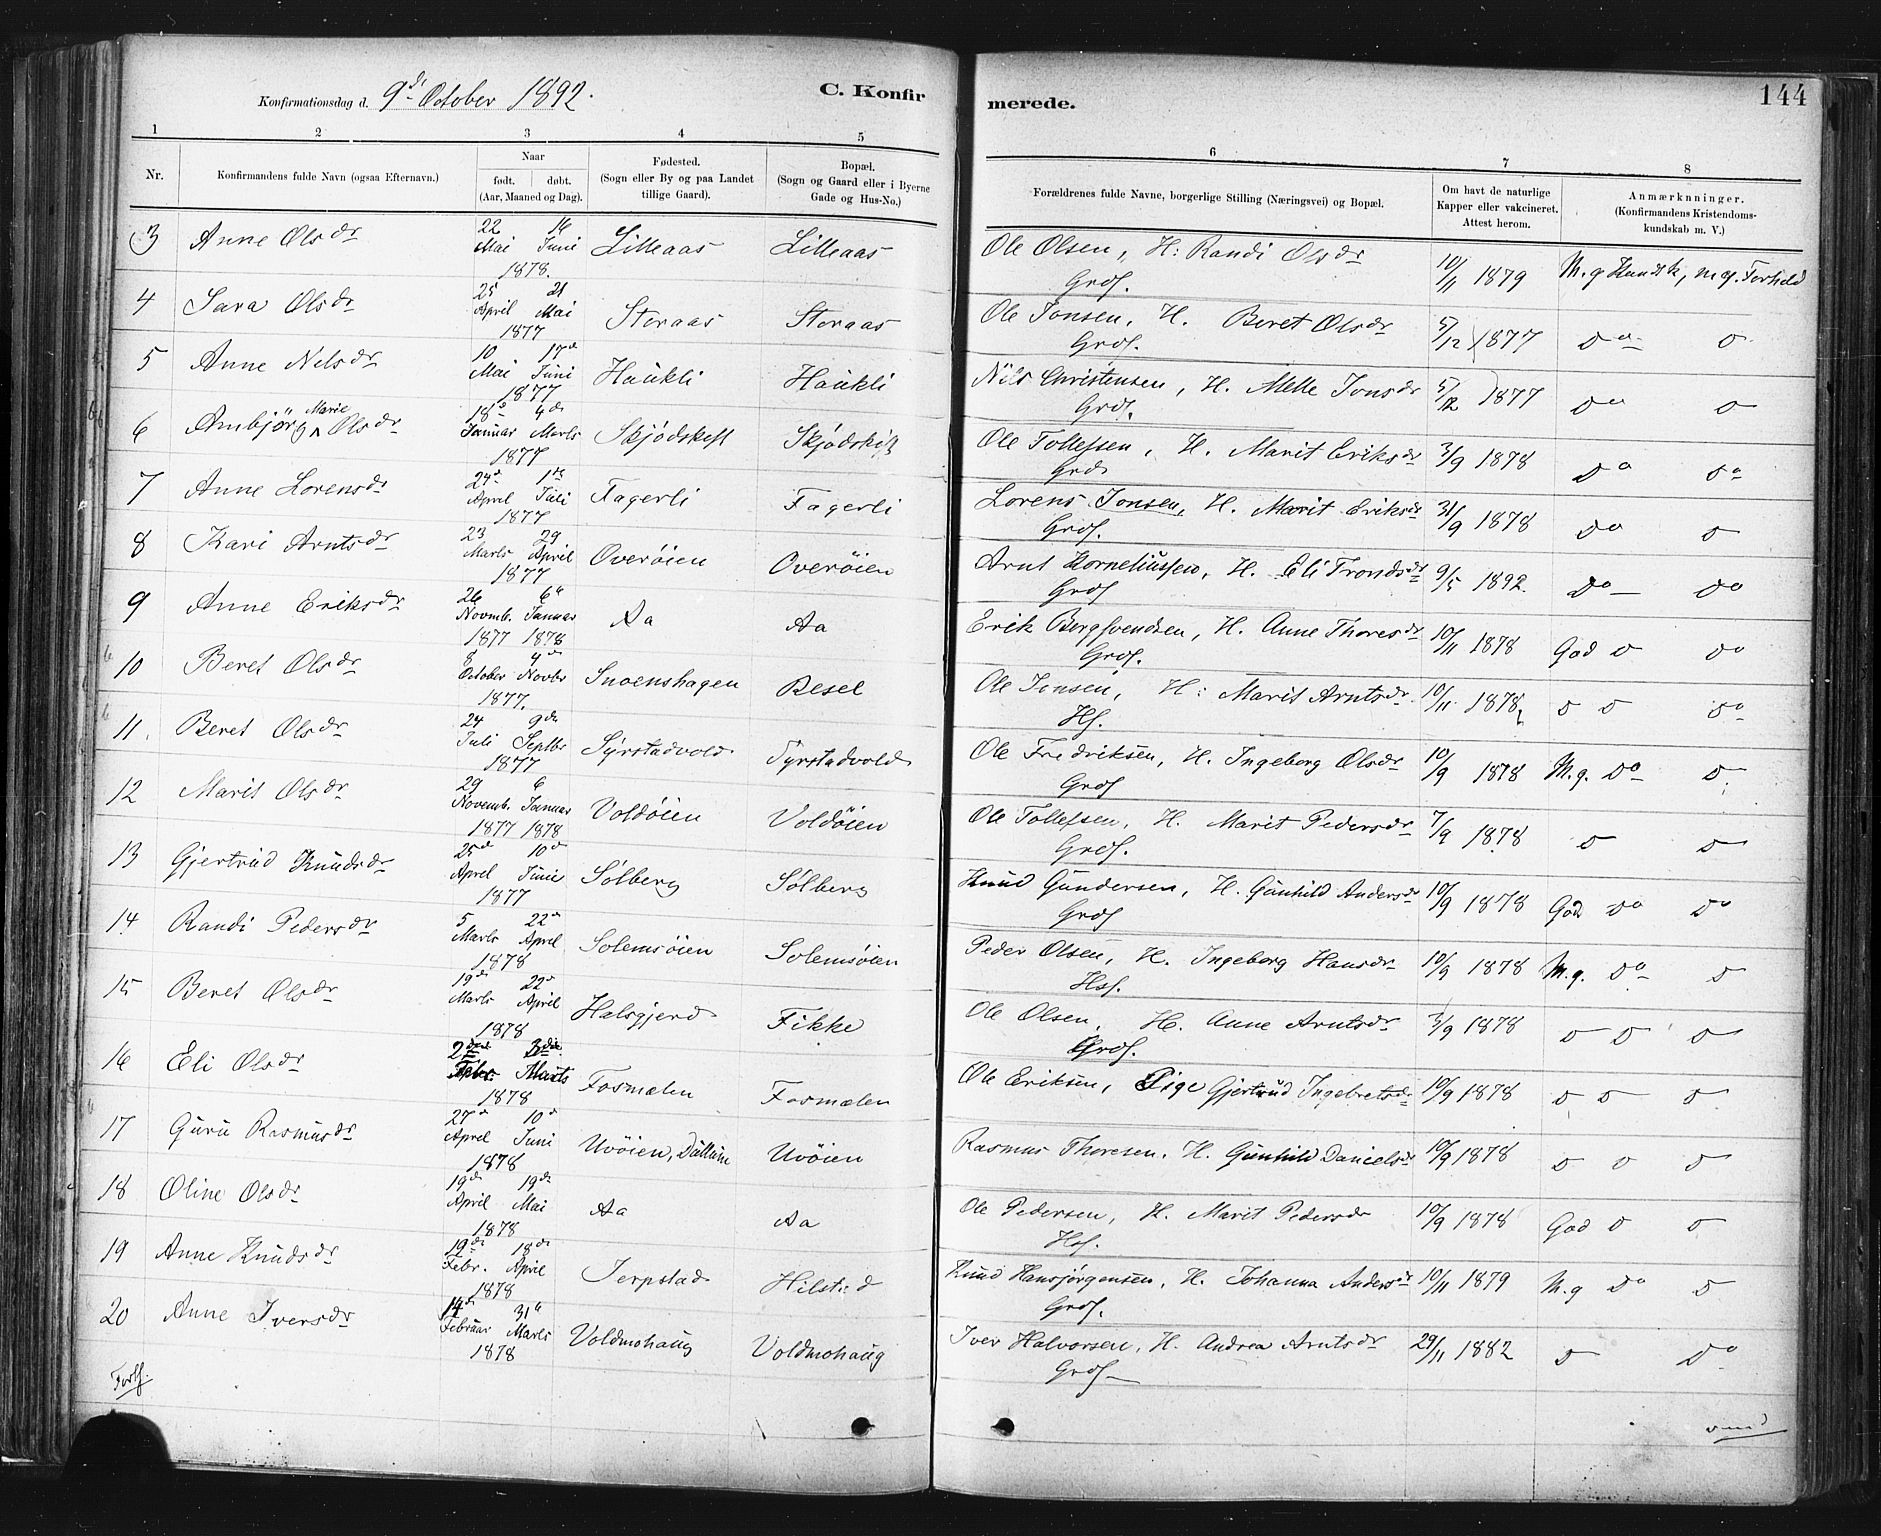 Konfirmationsdag d. 9de October 1892.
C. Konfirmerede.
144
1 2 3 4 5 6 7 8
Nr.
Konfirmandens fulde Navn (ogsaa Efternavn.)
Naar
født. døbt.
(Aar, Maaned og Dag).
Fødested.
(Sogn eller By og paa Landet
tillige Gaard).
Bopæl.
(Sogn og Gaard eller i Byerne
Gade og Hus-No.)
Forældrenes fulde Navne, borgerlige Stilling (Næringsvei) og Bopæl.
Om havt de naturlige
Kapper eller vakcineret.
Attest herom.
Anmærknninger.
(Konfirmandens Kristendoms-
kundskab m. V.)
3 Anne Olsdr 22 Mai 16 Juni 1878. Lilleaas Lilleaas Ole Olsen, H: Randi Olsdr Grdf. 10/11 1879 M. g Kundsk, m. g. Forhold
4 Sara Olsdr 25 April 21 Mai 1877 Storaas Storaas Ole Jonsen, H. Beret Olsdr Grdf. 5/12 1877 do o
5 Anne Nelsdr 10 Mai 17d Juni 1877 Haukli Haukli Nils Christensen, H. Melle Jonsdr Grdf. 5/12 1877 do o
6 Ambjörg Marie Olsdr 18d Januar 4de Marts 1877 Skjødskift Skjødskift Ole Tollefsen, H. Marit Eriksdr Grd 3/9 1878 do do
7 Anne Lorensdr 24d April 1ste Juli 1877 Fagerli Fagerli Lorens Jonsen, H. Marit Eriksdr Grdf. 31/9 1878 do o
8 Kari Arntsdr 23 Marts 29 April 1877 Overøien Overøien Arnt Korneliussen, H. Eli Trondsdr Grdf 9/5 1892. do do
9 Anne Eriksdr 26 Novmb. 1877 6te Januar 1878 Aa Aa Erik Bergsvendsen, H. Anne Thoresdr Grdf. 10/11 1878 God o do
10 Beret Olsdr October 4de Novbr 1877. Snoenshagen Resel Ole Jonsen, H: Marit Arntsdr Hf. 10/11 1878 o o do
11. Beret Olsdr 24 Juli 9de Septbr 1877 Syrstadvold Syrstadvold Ole Fredriksen, H. Ingeborg Olsdr Grdf 10/9 1878 M. g. do o
12 Marit Olsdr 29 Novemb. 1877 6 Januar 1878 Voldøien Voldøien Ole Tollefsen, H. Marit Pedersdr Grdf. 7/9 1878 o o
13 Gjertrud Knudsdr 25d Aprel 10d Juni 1877 Solberg Sølberg Knud Gundersen, H. Gunhild Andersdr Grdf 10/9 1878 God do do
14 Randi Pedersdr 5 Marts 22d Aprel 1878 Solemsøien Solemsøien Peder Olsen, H. Ingeborg Hansdr Hsf. 10/9 1878 M. g. do o
15 Beret Olsdr 19de Marts 22d April 1878 Halsgjerd Fikke Ole Olsen, H. Anne Arntsdr Grdf. 3/9 1878 o o o
16 Eli Olsdr Febr. 3die Marts 1878 Fosmælen Fosmælen Ole Eriksen, Pige Gjertrud Ingebretsdr 10/9 1878 o o o
17 Guru Rasmusdr 27d Aprel 10d Juni 1878 Uvöien, Uvöien Rasmus Thoresen, H. Gunhild Danielsdr 10/9 1878 o o o
18 Oline Olsdr 19de April 19de Mai 1878 Aa Aa Ole Pedersen, H. Marit Pedersdr Hsf. 10/9 1878 God o o
19 Anne Knudsdr 19de Febr. 18de April 1878 Jerpstad Hilstad Knud Hansjørgensen, H. Johanna Andersdr Grdf. 10/11 1879 M. g do o
20 Anne Iversdr 14de Februar 31te Marts 1878 Voldmohaug Voldmohaug Iver Halvorsen, H. Andrea Arntsdr Grdf 29/11 1882 o do
Forts.
vend